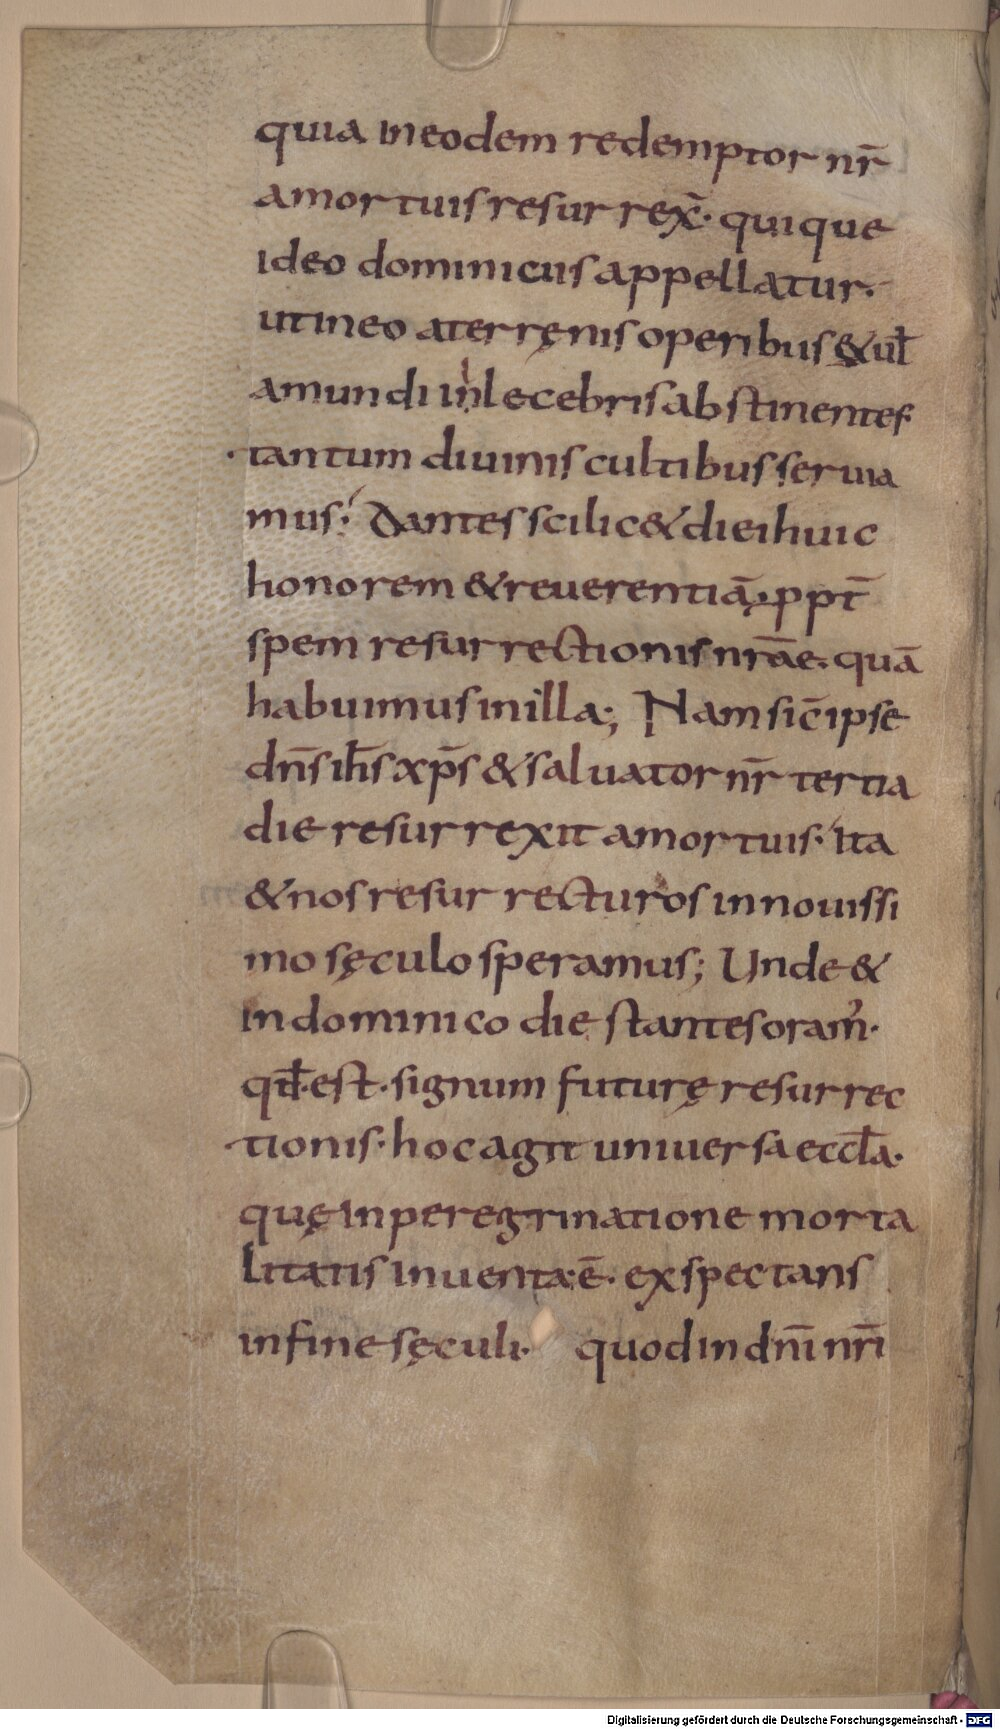 quia in eodem redemptor nr̄
a mortuis resurrex̄· quique
ideo dominicus appellatur·
ut in eo a terręnis operibus & ul̄
a mundi inlecebris abstinentes·
tantum diuinis cultibus seruia
mus·́ Dantes scilic& diei huic
honorem & reuerentiā· ppt̄
spem resurrectionis nrāe· quā
habuimus in illa·; Nam sic̄ ipse
dn̄s ih̄s xp̄s & saluator nr̄ tertia
die resurrexit a mortuis·́ Ita
& nos resurrecturos in nouissi
mo sęculo speramus; Unde &
in dominico die stantes oram᾿·
qd̄· est· signum futurę resurrec
tionis· hoc agit uniuersa eccl̄a·
quę in peregrinatione morta
litatis inuenta· ē· exspectans
in fine sęculi· quod in dn̄i nr̄i
Digitalisierung gefördert durch die Deutsche Forschungsgemeinschaft - DFG